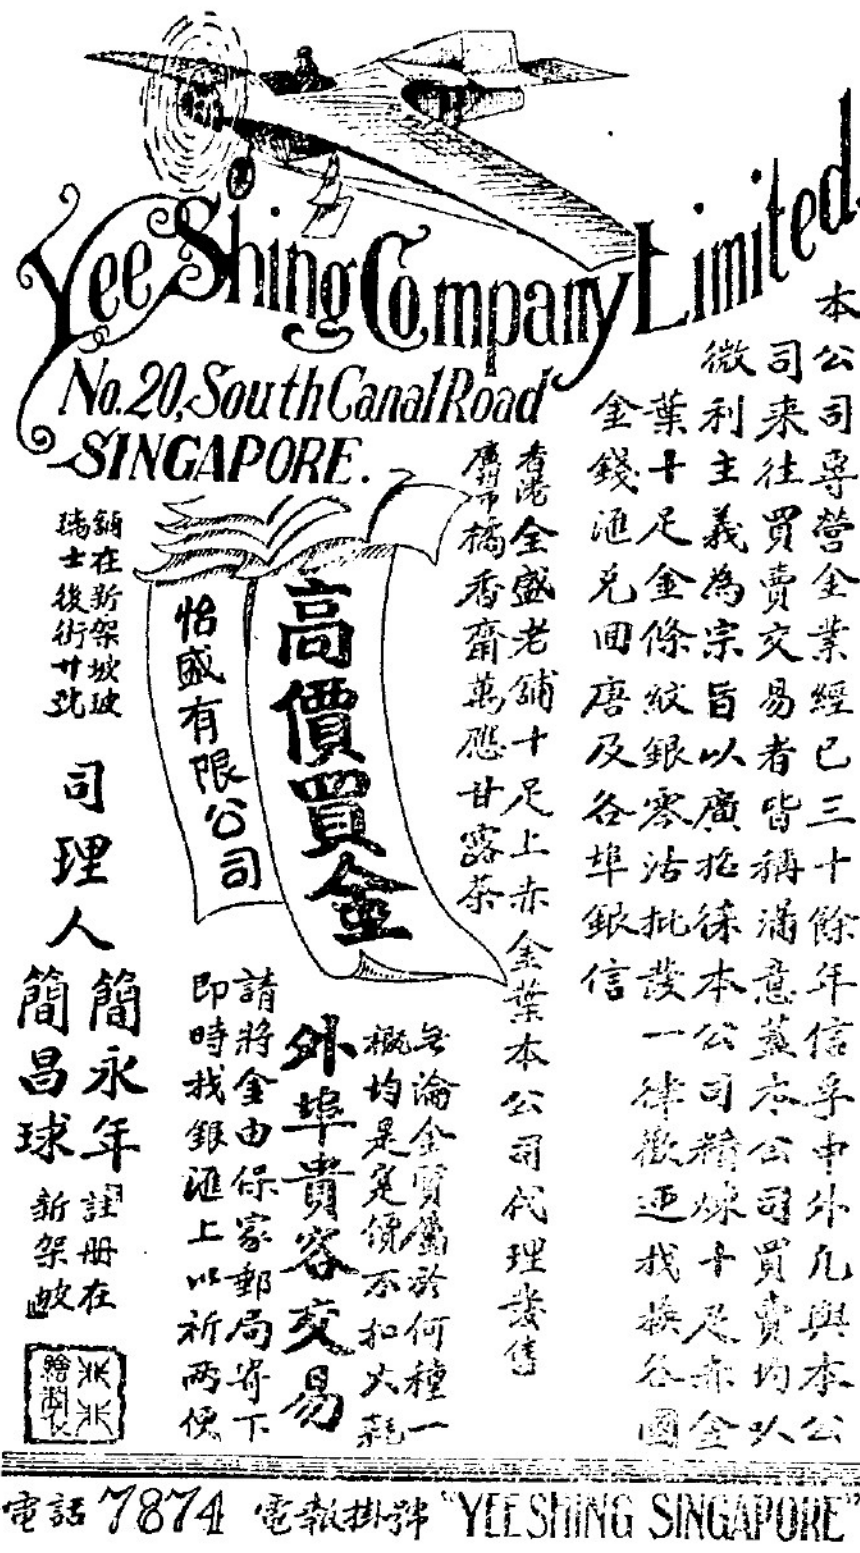 Yee Shing Company Limited.
No. 20, South Canal Road
SINGAPORE.
本公司專營金業經已三十餘年信孚中外凡與本公
司来往買賣交易者皆稱滿意蓋本公司買賣均以
微利主義為宗旨以廣招徠本公司精煉十足赤金
葉十足金條紋銀零沽批發一律歡迎找換各國
金錢滙兌回唐及各埠銀信
香港全盛老舖十足上赤金葉本公司代理發售
廣州市橋香齋萬應甘露茶
高價買金
怡盛有限公司
舖在新架坡玻
璃士後街廿號
司理人
簡永年
簡昌球
註冊在
新架坡
無論金質屬於何種一
概均是寔價不扣火耗
外埠貴客交易
請將金由保家郵局寄下
即時找銀滙上以祈兩便
繪製
電話 7874 電報掛號 "YEESHING SINGAPORE"